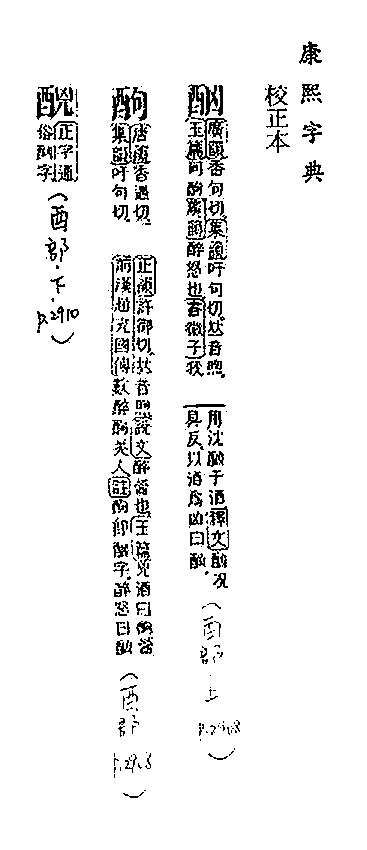 康熙字典
校正本
酗
廣韻香句切。集韻吁句切。𠀤音煦。
玉篇同 集韻醉怒也書微子我
用沈酗于酒釋文酗况
具反。以酒爲凶曰酗。
（酉部.上 P.2908）
唐韻香遇切。
集韻吁句切。
正韻許御切。𠀤音昫。說文醉醟也。玉篇兇酒曰 醟
前漢趙充國傳數醉 羌人註 卽酗字。醉怒曰酗
（酉部 P.2908）
正字通
俗酗字
（酉部.下 P.2910）